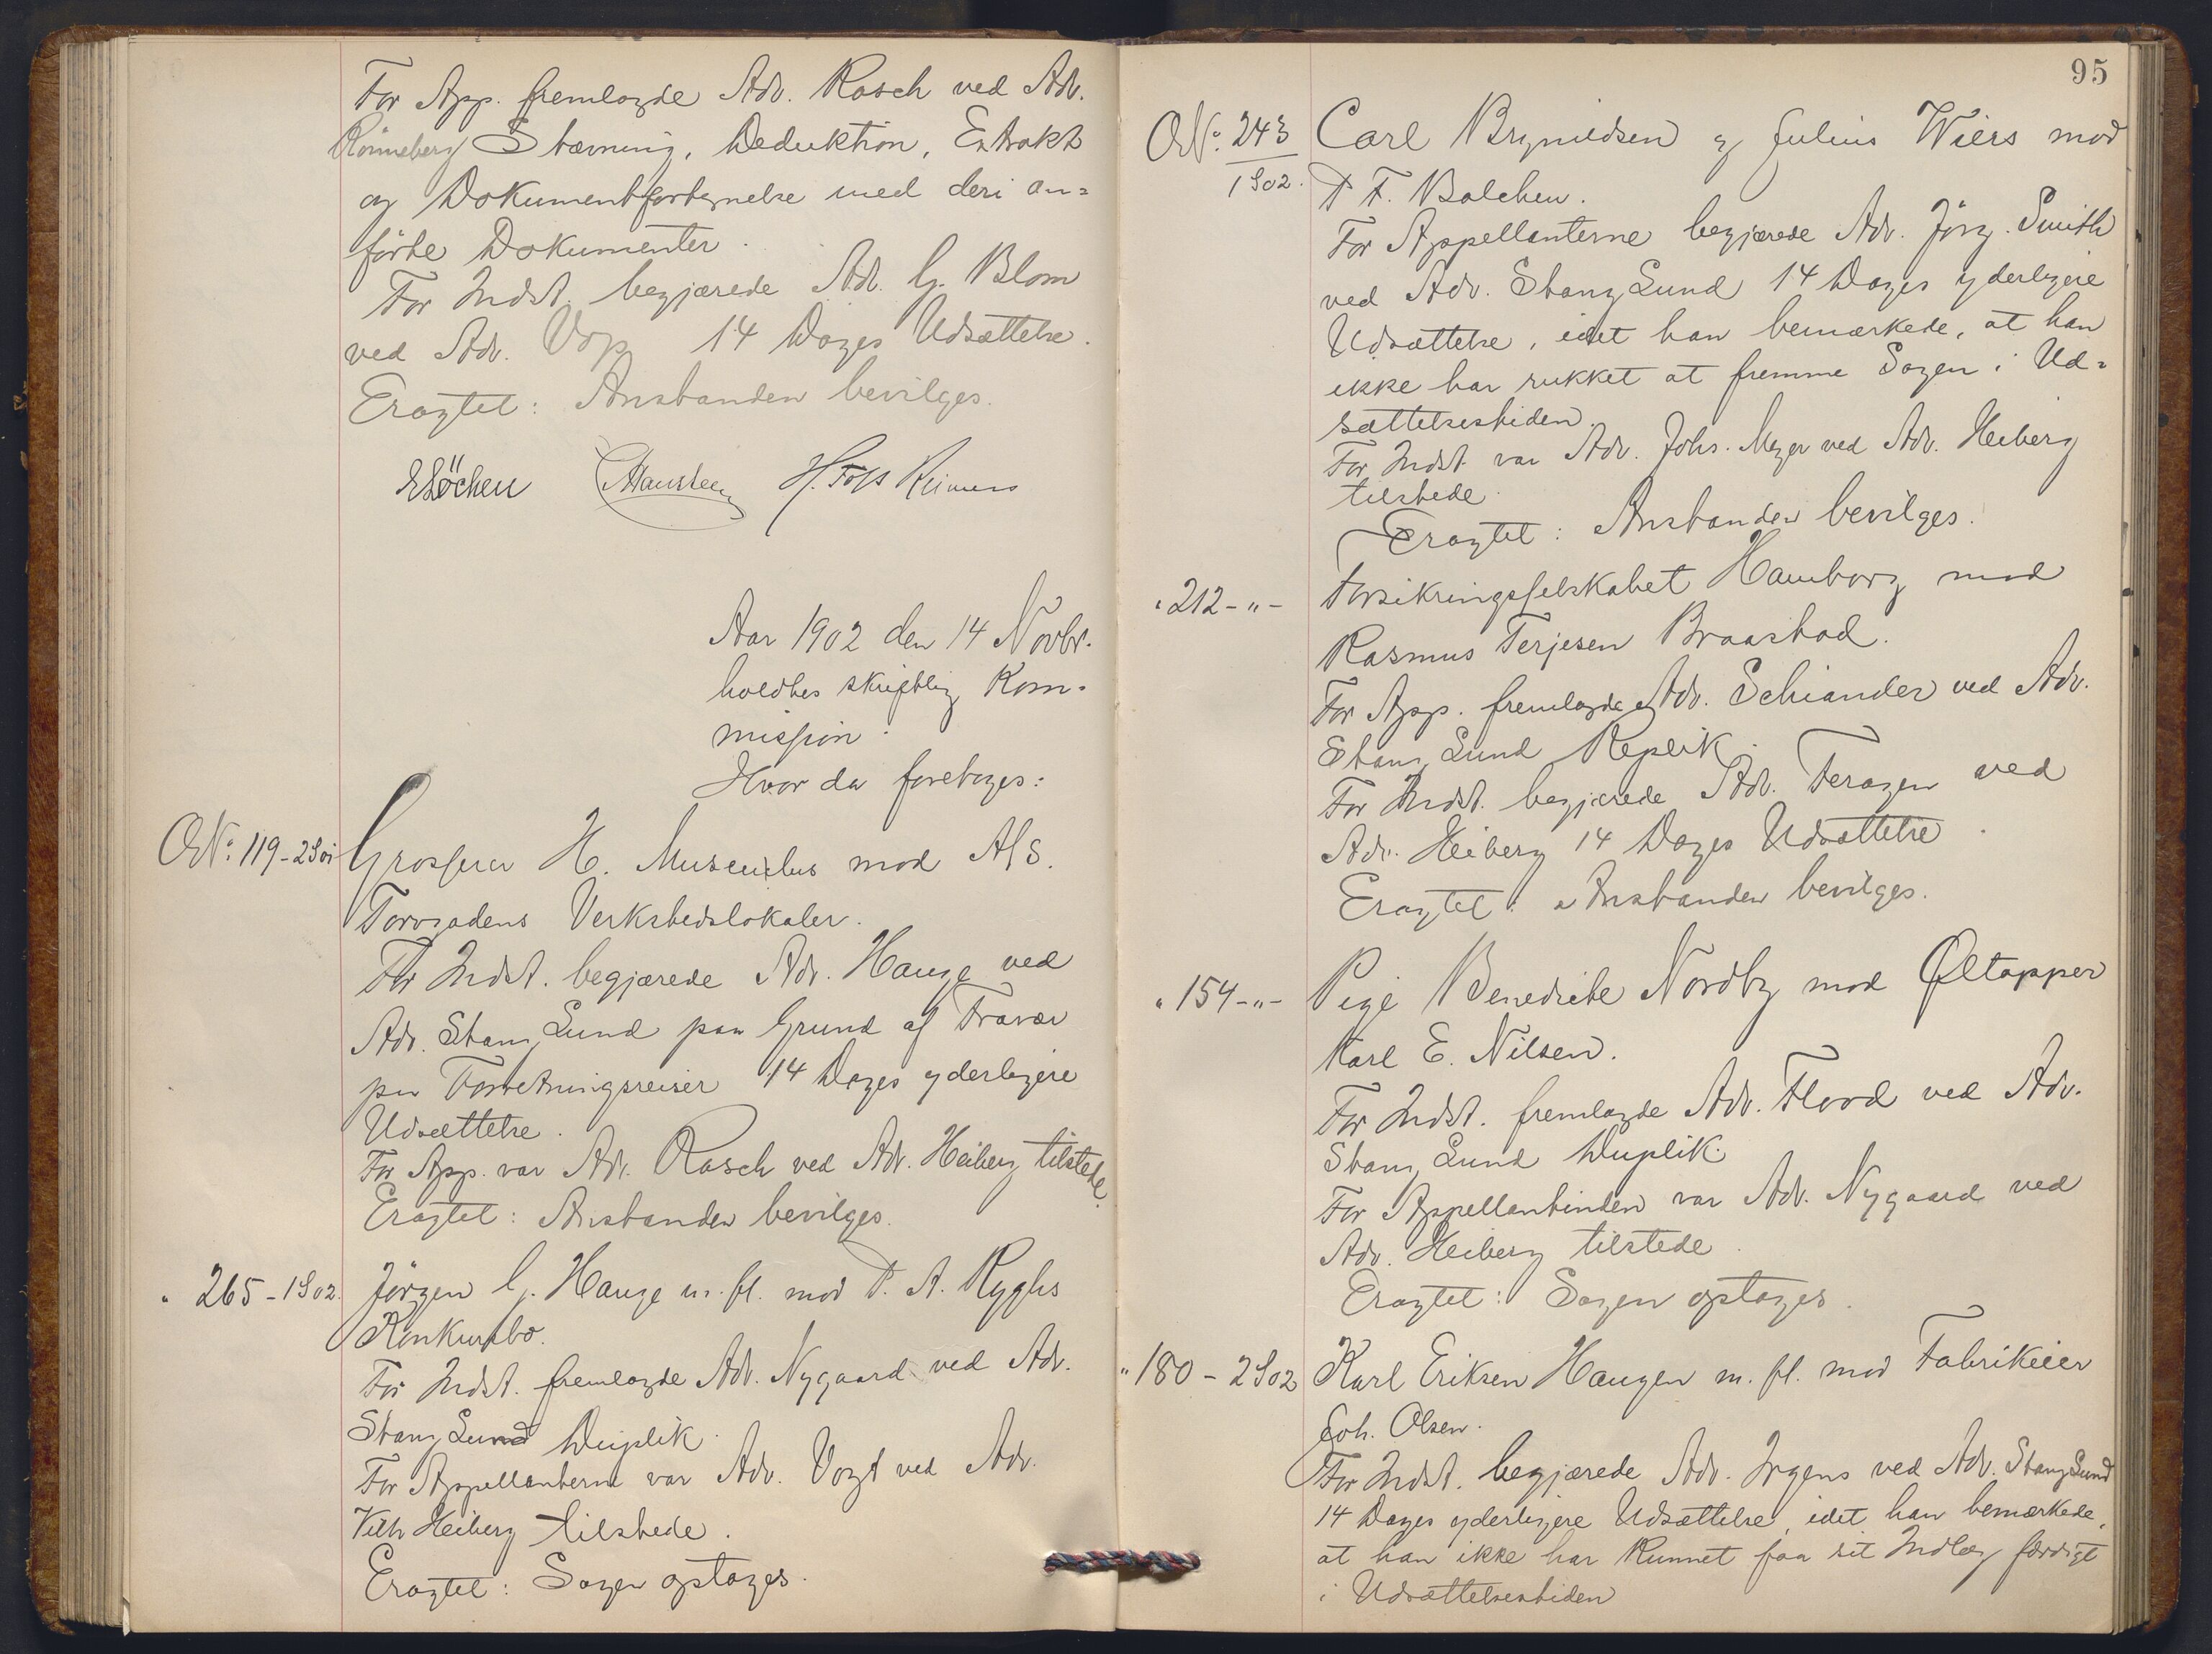 For App. fremlagde Adv. Rasch ved Adv.
Rönneberg Stævning, Deduktion, Extrakt
og Dokumentfortegnelse med deri an=
förte Dokumenter.
For Indst. begjærede Adv. G. Blom
ved Adv. 14 Dages Udsættelse.
Eragtet: Anstanden bevilges.
ELöchen Hansteen H. Foss Reimers
Aar 1902 den 14 Novbr.
holdtes skriftlig Kom-
mission.
Hvor da foretoges:
O No. 119-2S01 Grosserer H. Musculus mod A/S.
Torvgadens Verkstedslokaler.
For Indst. begjærede Adv. Hauge ved
Adv. Stang Lund paa Grund af Fravær
paa Forretningsreiser 14 Dages yderligere
Udsættelse.
For App. var Adv. Rasch ved Adv. Heiberg tilstede.
Eragtet: Anstanden bevilges.
" 265-1S02. Jörgen G. Hauge m. fl. mod P. A. Ryghs
Konkursbo.
For Indst. fremlagde Adv. Nygaard ved Adv.
Stang Lund Duplik.
For Appellanterne var Adv. Vogt ved Adv.
Vilh Heiberg tilstede.
Eragtet: Sagen optages.
95
O No. 243 Carl Brynildsen og Julius Wiers mod
1S02. P F. Balchen.
For Appellanterne begjærede Adv. Jörg. Smith
ved Adv. Stang Lund 14 Dages yderligere
Udsættelse, idet han bemærkede, at han
ikke har rukket at fremme Sagen i Ud=
sættelsestiden.
For Indst. var Adv. Johs. Meyer ved Adv. Heiberg
tilstede.
Eragtet: Anstanden bevilges.
" 212-"- Forsikringsselskabet Hamborg mod
Rasmus Terjesen Braastad.
For App. fremlagde Adv. Schiander ved Adv.
Stang Lund Replik.
For Indst. begjærede Adv. Feragen ved
Adv. Heiberg 14 Dages Udsættelse.
Eragtet: Anstanden bevilges.
" 154-"- Pige Benedicte Nordby mod Øltapper
Karl E. Nilsen.
For Indst. fremlagde Adv. Flood ved Adv.
Stang Lund Duplik.
For Appellantinden var Adv. Nygaard ved
Adv. Heiberg tilstede.
Eragtet: Sagen optages.
" 180-2S02 Karl Eriksen Haugen m. fl. mod Fabrikeier
Joh. Olsen.
For Indst. begjærede Adv. Irgens ved Adv. Stang Lund
14 Dages yderligere Udsættelse, idet han bemærkede,
at han ikke har kunnet faa sit Indlæg færdigt
i Udsættelsestiden